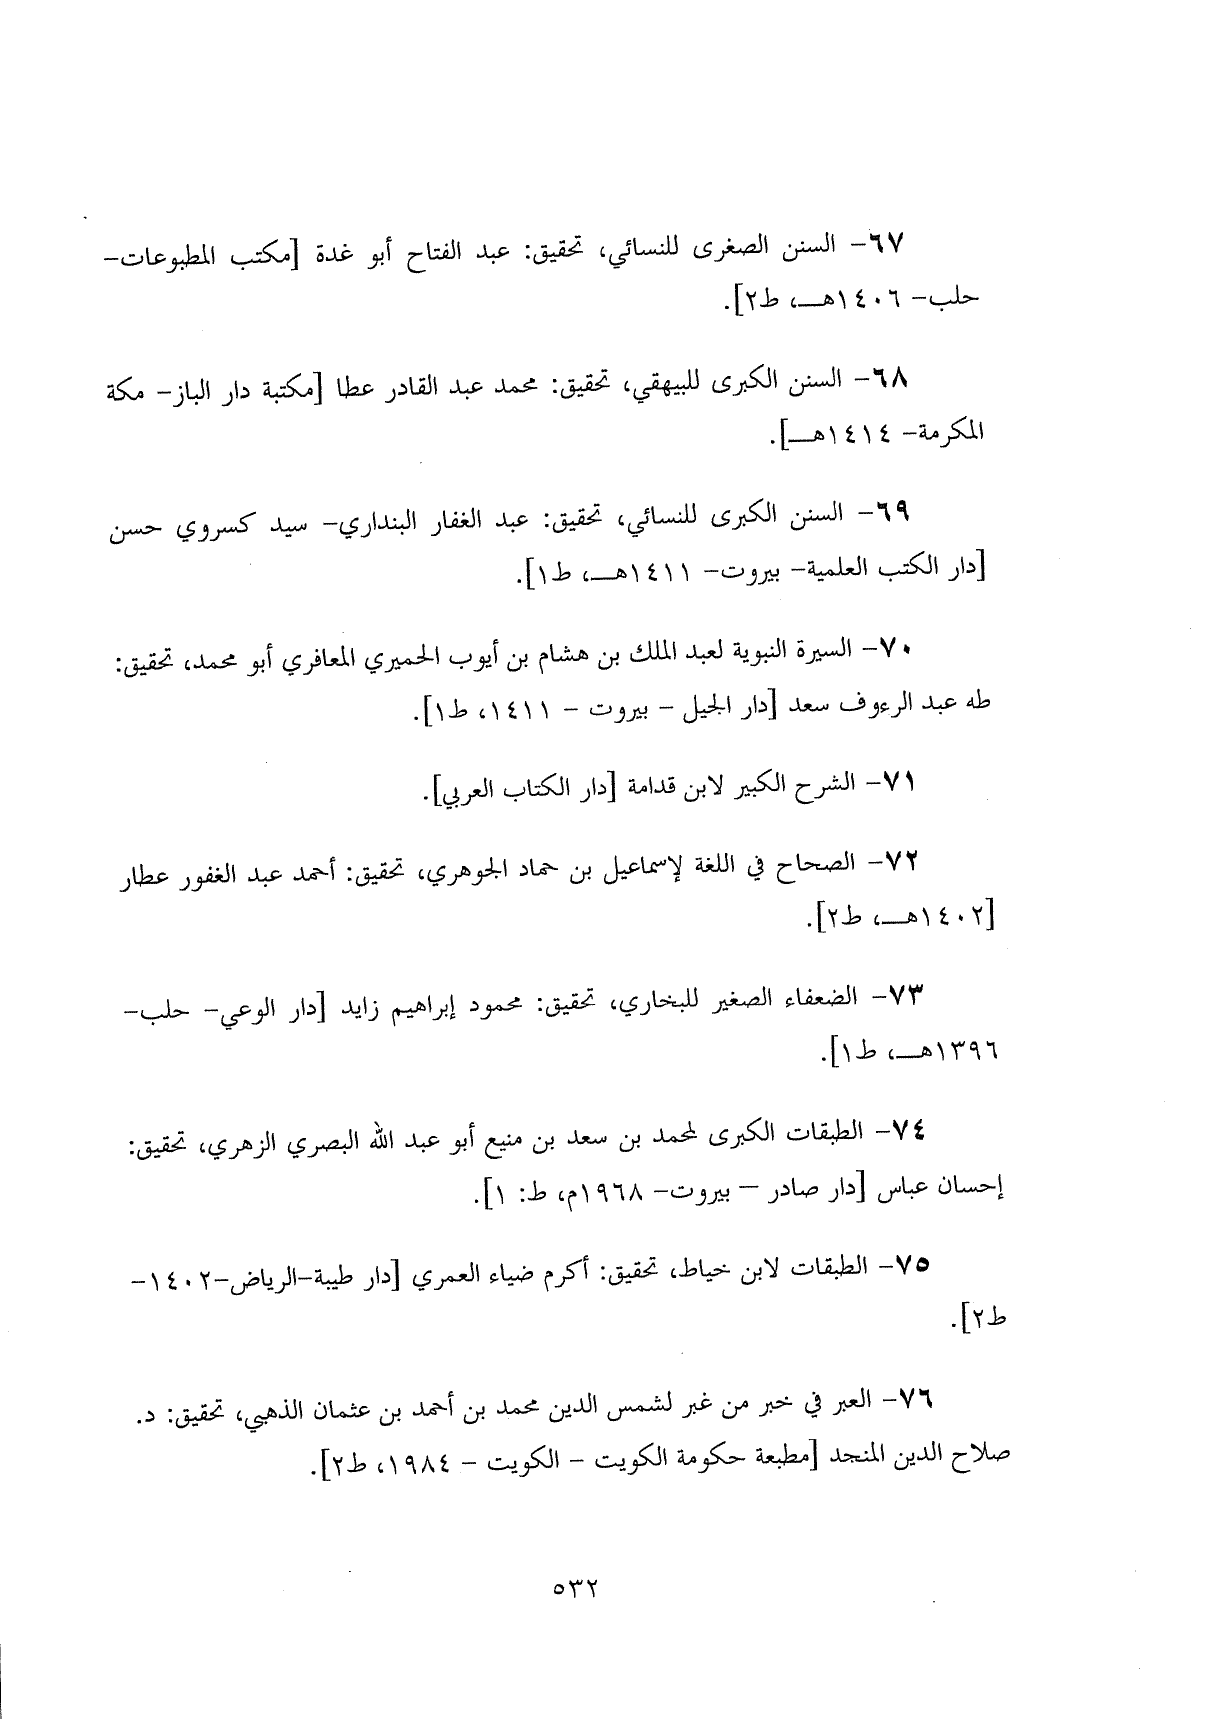 ٦٧- السنن الصغرى للنسائي، تحقيق: عبد الفتاح أبو غدة [مكتب المطبوعات-
حلب- ١٤٠٦هـ، ط٢].
٦٨- السنن الكبرى للبيهقي، تحقيق: محمد عبد القادر عطا [مكتبة دار الباز- مكة
المكرمة- ١٤١٤هـ].
٦٩- السنن الكبرى للنسائي، تحقيق: عبد الغفار البنداري- سيد كسروي حسن
[دار الكتب العلمية- بيروت- ١٤١١هـ، ط١].
٧٠- السيرة النبوية لعبد الملك بن هشام بن أيوب الحميري المعافري أبو محمد، تحقيق:
طه عبد الرءوف سعد [دار الجيل - بيروت - ١٤١١، ط١].
٧١- الشرح الكبير لابن قدامة [دار الكتاب العربي].
٧٢- الصحاح في اللغة لإسماعيل بن حماد الجوهري، تحقيق: أحمد عبد الغفور عطار
[١٤٠٢هـ، ط٢].
٧٣- الضعفاء الصغير للبخاري، تحقيق: محمود إبراهيم زايد [دار الوعي- حلب-
١٣٩٦هـ، ط١].
٧٤- الطبقات الكبرى لمحمد بن سعد بن منيع أبو عبد الله البصري الزهري، تحقيق:
إحسان عباس [دار صادر – بيروت- ١٩٦٨م، ط: ١].
٧٥- الطبقات لابن خياط، تحقيق: أكرم ضياء العمري [دار طيبة-الرياض-١٤٠٢-
ط٢].
٧٦- العبر في خبر من غبر لشمس الدين محمد بن أحمد بن عثمان الذهبي، تحقيق: د.
صلاح الدين المنجد [مطبعة حكومة الكويت - الكويت - ١٩٨٤، ط٢].
٥٣٢